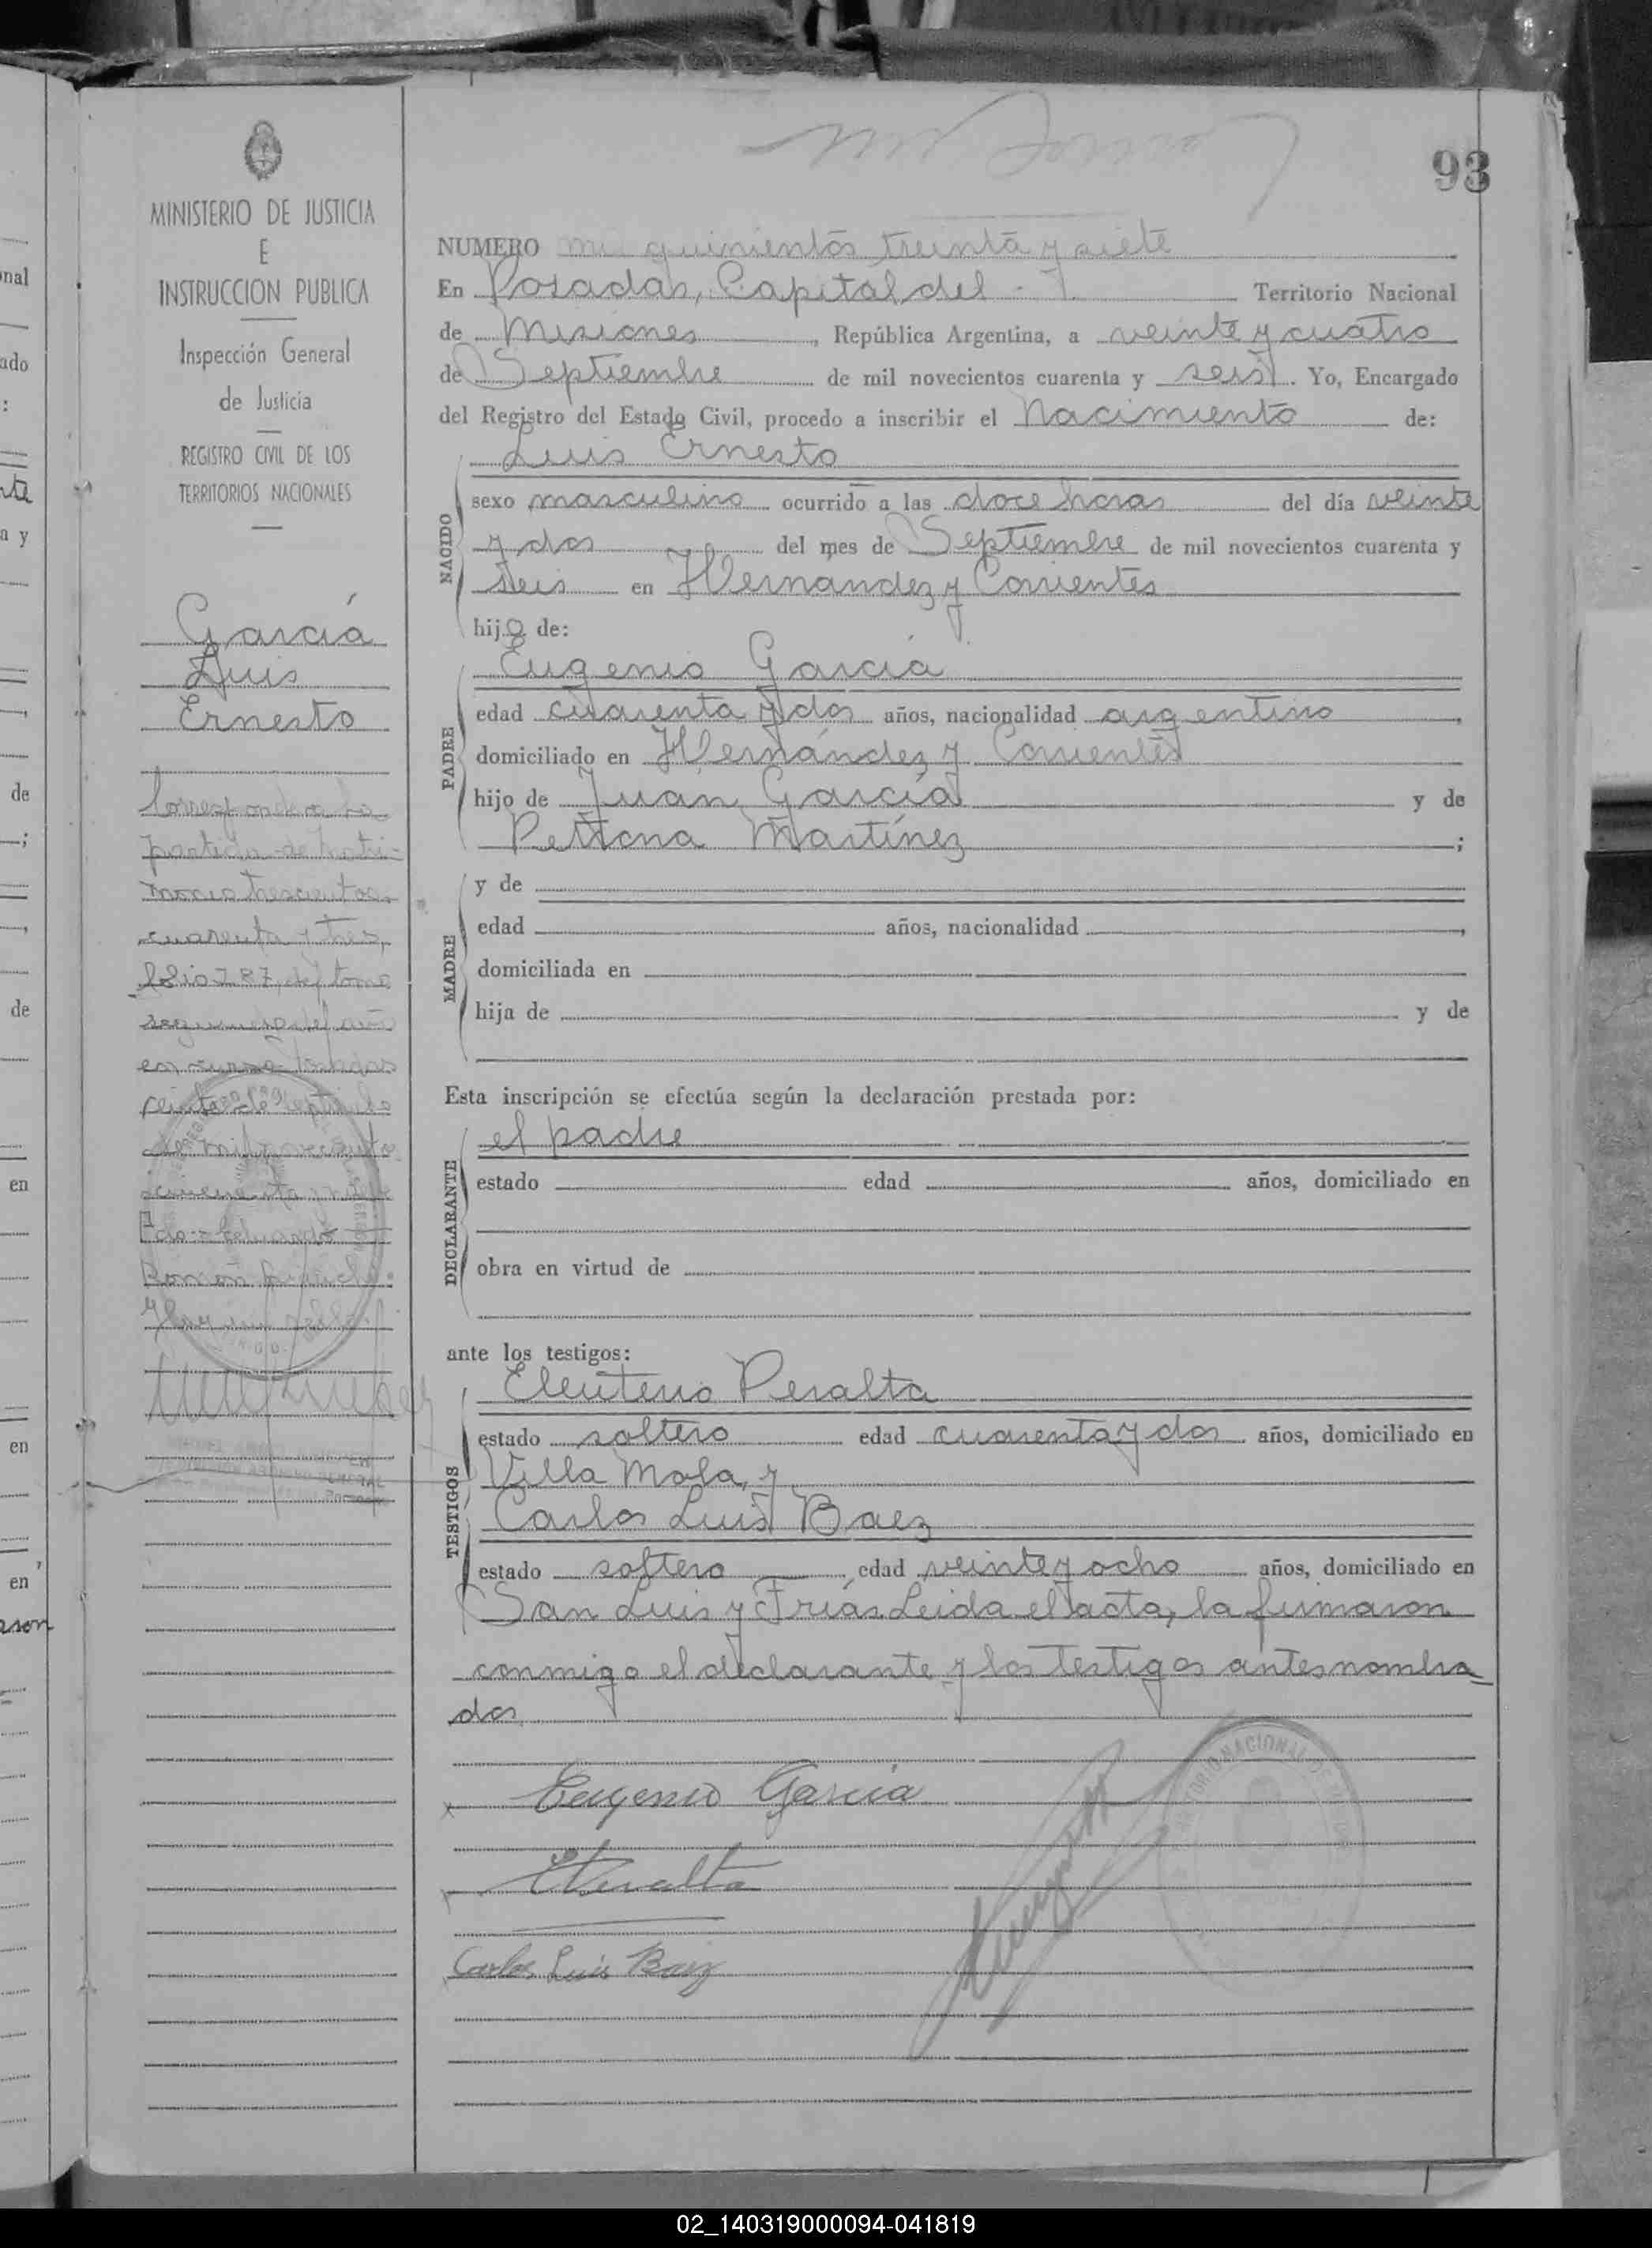 93
MINISTERIO DE JUSTICIA
E
INSTRUCCION PUBLICA
Inspección General
de Justicia
REGISTRO CIVIL DE LOS
TERRITORIOS NACIONALES
García
Luis
Ernesto
Corresponde a la
partida de matri-
monio trescientos
cuarenta y tres,
folio 287, del tomo
segundo del año
en curso Posadas
septiembre
de mil novecientos
Fdo: Eduardo
Ramón
NUMERO mil quinientos treinta y siete
En Posadas, Capital del Territorio Nacional
de Misiones, República Argentina, a veinte y cuatro
de Septiembre de mil novecientos cuarenta y seis. Yo, Encargado
del Registro del Estado Civil, procedo a inscribir el Nacimiento de:
Luis Ernesto
NACIDO
sexo masculino ocurrido a las doce horas del día veinte
y dos del mes de Septiembre de mil novecientos cuarenta y
seis en Hernández y Corrientes
hijo de:
Eugenio García
PADRE
edad cuarenta y dos años, nacionalidad argentino,
domiciliado en Hernández y Corrientes
hijo de Juan García y de
Petrona Martínez;
y de
MADRE
edad años, nacionalidad,
domiciliada en
hija de y de
Esta inscripción se efectúa según la declaración prestada por:
el padre
DECLARANTE
estado edad años, domiciliado en
obra en virtud de
ante los testigos:
Eleuterio Peralta
TESTIGOS
estado soltero edad cuarenta y dos años, domiciliado en
Villa Mola, y
Carlos Luis Baez
estado soltero, edad veinte y ocho años, domiciliado en
San Luis y Frías. Leida el acta, la firmaron
conmigo el declarante y los testigos antes nombra-
dos
Eugenio García
EPeralta
Carlos Luis Baez
02_140319000094-041819